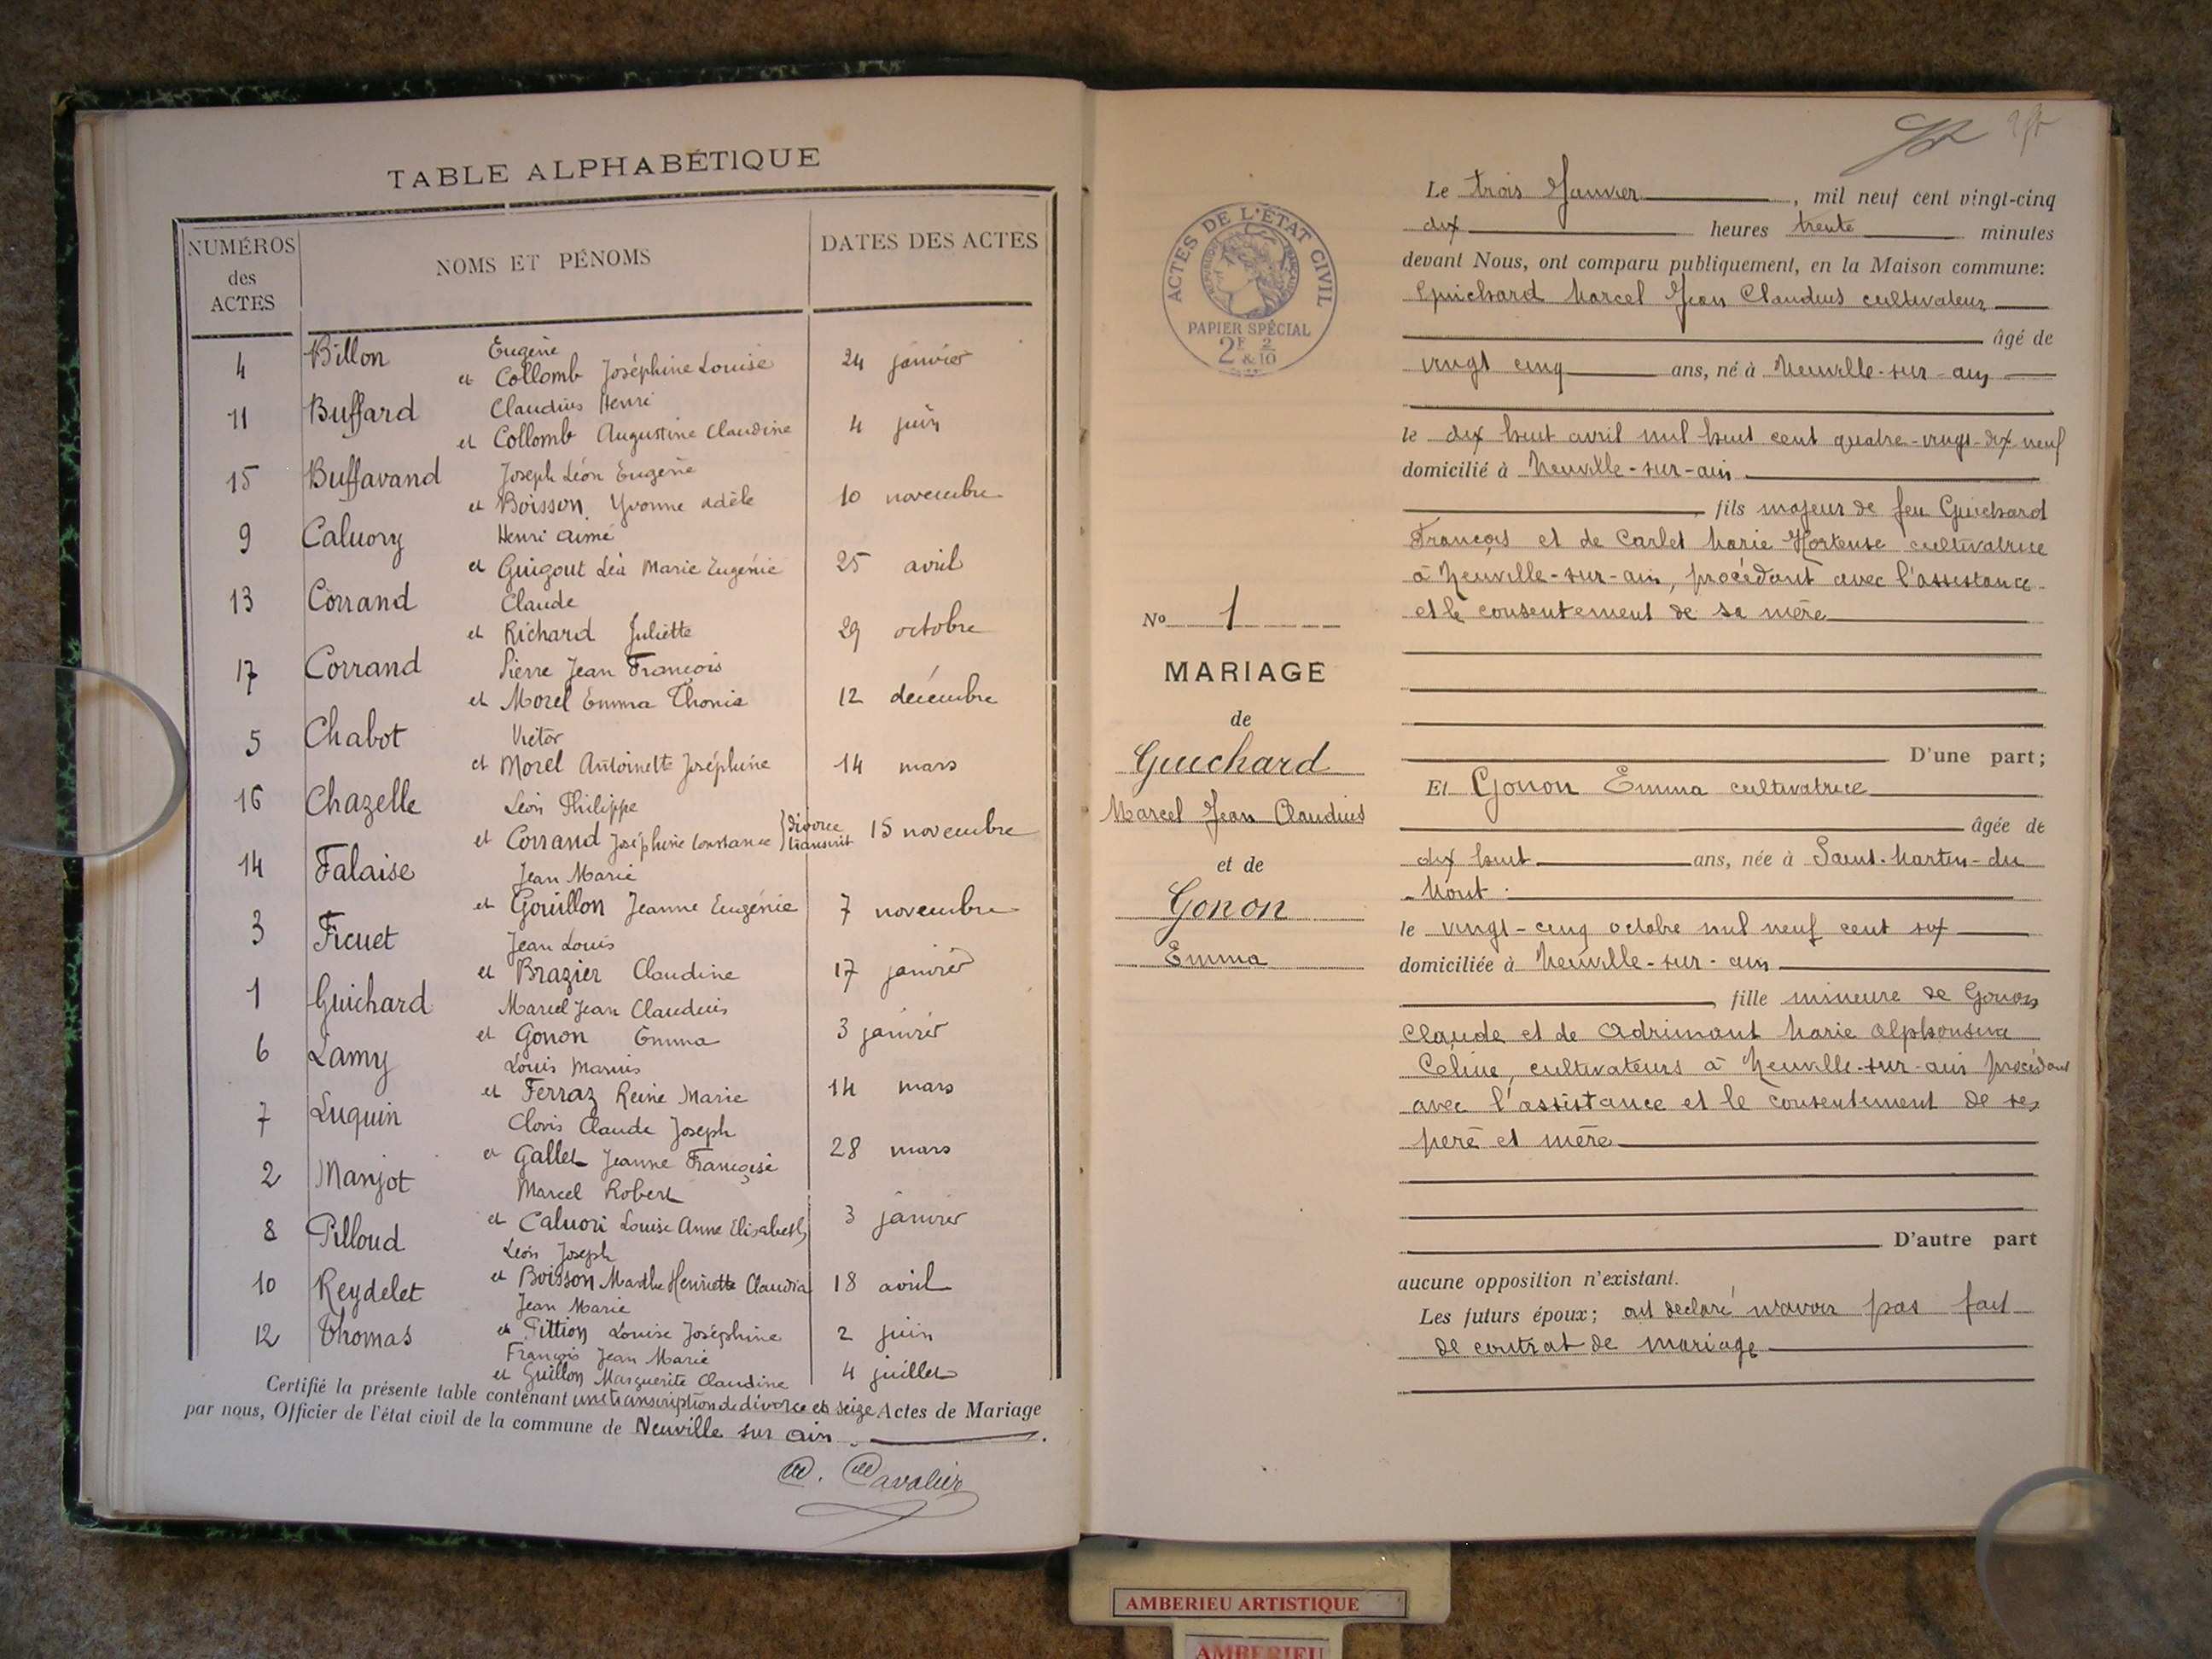 TABLE ALPHABÉTIQUE
NUMÉROS des ACTES NOMS ET PÉNOMS DATES DES ACTES
4 Billon Eugène
et Collomb Joséphine Louise 24 janvier
11 Buffard Claudius Henri
et Collomb Augustine Claudine 4 juin
15 Buffavand Joseph Léon Eugène
et Boisson Yvonne Adèle 10 novembre
9 Caluory Henri Aimé
et Guigout Léa Marie Eugénie 25 avril
13 Corrand Claude
et Richard Juliette 29 octobre
17 Corrand Pierre Jean François
et Morel Emma Thonie 12 décembre
5 Chabot Victor
et Morel Antoinette Joséphine 14 mars
16 Chazelle Léon Philippe
et Corrand Joséphine Constance } divorce transcrit 15 novembre
14 Falaise Jean Marie
et Gouillon Jeanne Eugénie 7 novembre
3 Ficuet Jean Louis
et Brazier Claudine 17 janvier
1 Guichard Marcel Jean Claudius
et Gonon Emma 3 janvier
6 Lamy Louis Marius
et Ferraz Reine Marie 14 mars
7 Luquin Clovis Claude Joseph
et Gallet Jeanne Françoise 28 mars
2 Manjot Marcel Robert
et Caluori Louise Anne Elisabeth 3 janvier
8 Pilloud Léon Joseph
et Boisson Marthe Henriette Claudia 18 avril
10 Reydelet Jean Marie
et Pittion Louise Joséphine 2 juin
12 Thomas François Jean Marie
et Guillon Marguerite Claudine 4 juillet
Certifié la présente table contenant une transcription de divorce et seize Actes de Mariage
par nous, Officier de l'état civil de la commune de Neuville sur ain.
Cavalier
ACTES DE L'ÉTAT CIVIL
RÉPUBLIQUE FRANÇAISE
PAPIER SPÉCIAL
2F & 2/10
No 1
MARIAGE
de
Guichard
Marcel Jean Claudius
et de
Gonon
Emma
Le trois Janvier, mil neuf cent vingt-cinq
dix heures trente minutes
devant Nous, ont comparu publiquement, en la Maison commune:
Guichard Marcel Jean Claudius cultivateur
âgé de
vingt cinq ans, né à Neuville-sur-ain
le dix huit avril mil huit cent quatre-vingt-dix neuf
domicilié à Neuville-sur-ain
, fils majeur de feu Guichard
François et de Carlet Marie Hortense cultivatrice
à Neuville-sur-ain, procédant avec l'assistance
et le consentement de sa mère
D'une part;
Et Gonon Emma cultivatrice
âgée de
dix huit ans, née à Saint-Martin-du
-Mont
le vingt-cinq octobre mil neuf cent six
domiciliée à Neuville-sur-ain
, fille mineure de Gonon
Claude et de Adrimont Marie Alphonsine
Céline, cultivateurs à Neuville-sur-ain procédant
avec l'assistance et le consentement de ses
père et mère
D'autre part
aucune opposition n'existant.
Les futurs époux; ont déclaré n'avoir pas fait
de contrat de mariage
AMBERIEU ARTISTIQUE
AMBERIEU